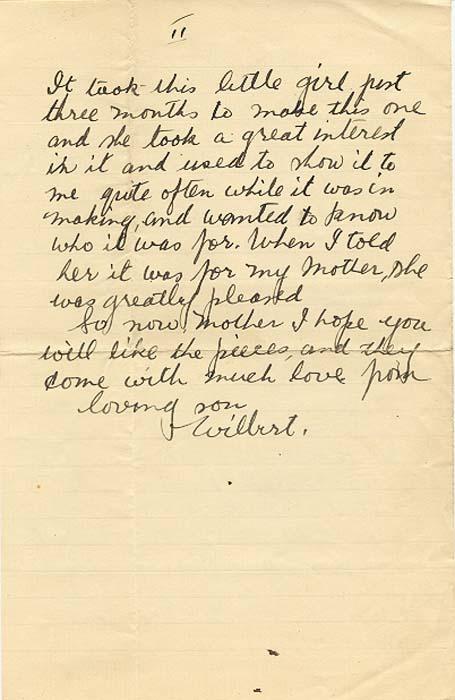 II
It took this little girl just
three months to make this one
and she took a great interest
in it and used to show it to
me quite often while it was in
making, and wanted to know
who it was for. When I told
her it was for my Mother, she
was greatly pleased
So now, Mother I hope you
will like the pieces, and they
come with much love from
loving son
Wilbert.